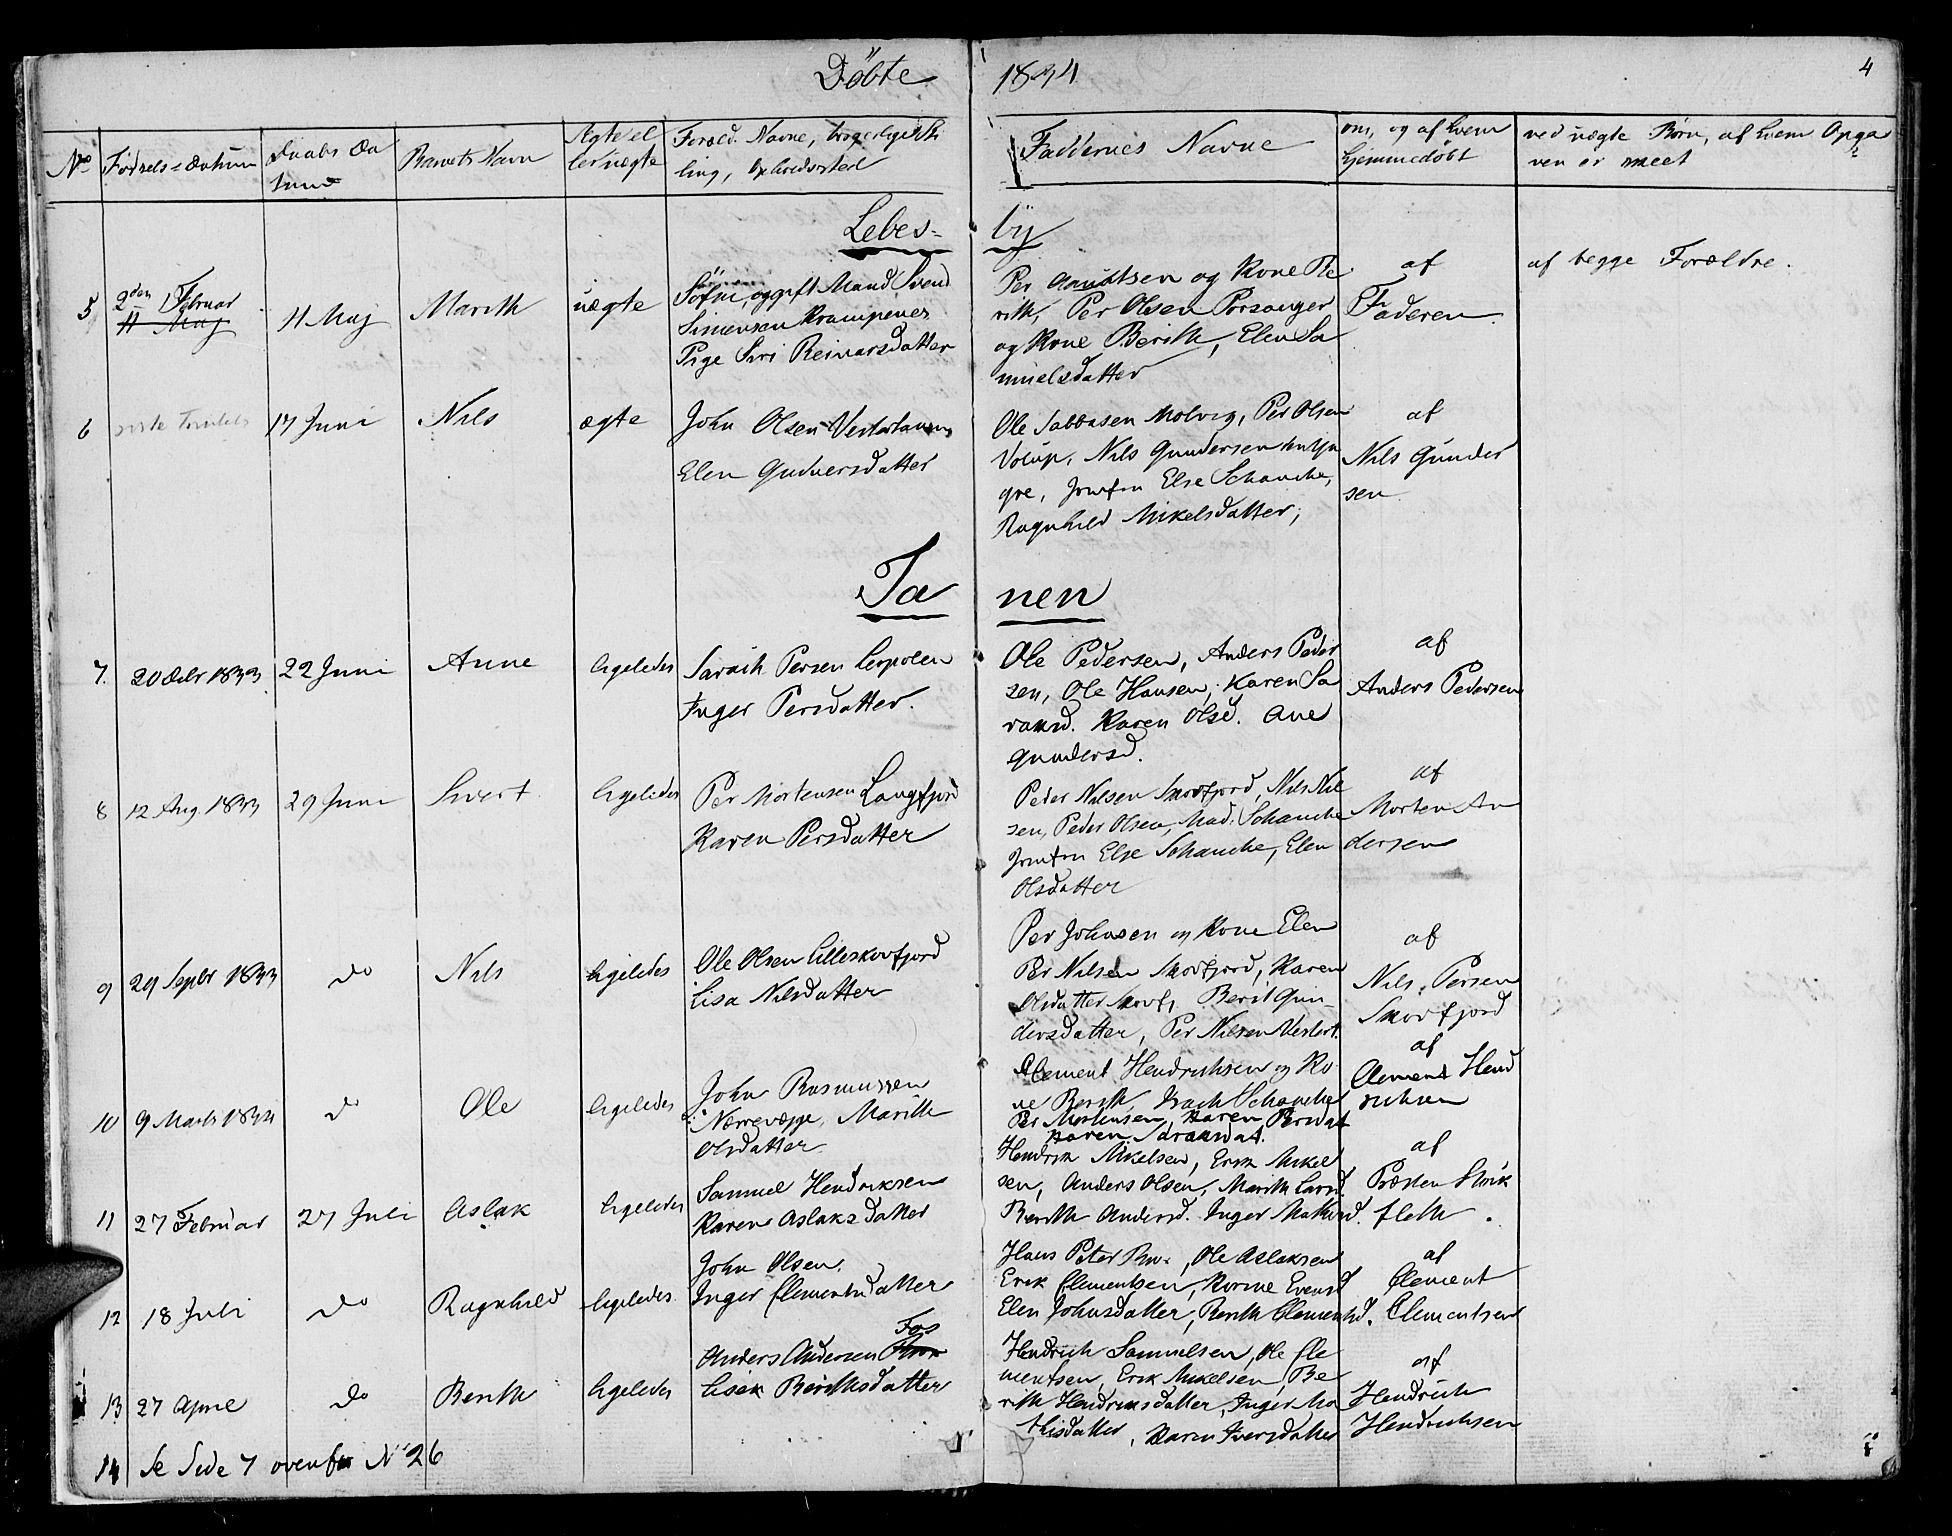 Döbte 1834
4
No Fødsels-Datum Daabs Da Barnets Navn Ægte el Foræld. Navne, borgerlige Stil
tum ler uægte ling, Opholdssted
Faddernes Navne om, og af hvem ved uægte Børn, af hvem Opga
hjemmedøbt ven er skeet
Lebes-
by
5 2den Februar 11 Maj Marith uægte
11 Maj
ugift Mand Svend
Simensen Krampenes
Pige Siri Reinarsdatter
Per Amundsen og Kone Be
rith, Per Olsen Porsanger
og Kone Berith, Elen Sa
muelsdatter
af
Faderen.
af begge Forældre.
6 17 Juni Nils ægte John Olsen Vestertanen
Elen Gunnersdatter
Ole Sabbasen Molvig, Per Olsen
Nils Gundersen
Jomfru Else Schanche,
Ragnhild Mikelsdatter,
af
Nils Gunder
sen.
Ta
nen
7. 20 1833 22 Juni Anne ligeledes Persen Lerpolen
Inger Persdatter.
Ole Pedersen, Anders Peder
sen, Ole Hansen, Karen Sa
Karen Olsd. Ane
Gundersd.
af
Anders Pedersen
8 12 Aug. 1833 29 Juni Sivert ligeledes Per Mortensen Langfjord
Karen Persdatter
Peder Nilsen Skorfjord, Nils Nil
sen, Peder Olsen, Mad. Schanche
Jomfru Else Schanche, Elen
Olsdatter
af
Morten An
dersen
9 29 Septbr 1833 do Nils ligeledes Ole Olsen Lilleskorfjord
Lisa Nilsdatter
Per Johnsen og Kone Elen
Per Nilsen Skorfjord, Karen
Olsdatter Skorfj. Berit Gun-
dersdatter, Per Nilsen Vestert.
af
Nils Persen
Skorfjord
10 9 Marts 1834 do Ole ligeledes John Rasmussen
Marith
Olsdatter
Clement Hendrichsen og Ko
ne Berith, Schanche
Per Mortensen, Karen Persdat
Karen
af
Clement Hend
richsen
11 27 Februar 27 Juli Aslak ligeledes Samuel Hendriksen
Karen Aslaksdatter
Hendrik Mikelsen, Erik Mikel
sen, Anders Olsen, Marith Larsd.
Berith Andersd. Inger
af
Præsten Stock
fleth.
12 18 Juli do Ragnhild ligeledes John Olsen.
Inger Clementsdatter
Hans Peter Ole Aslaksen
Erik Clementsen,
Elen Johnsdatter, Berith Clementsd.
af
Clement
Clementsen
13 27 April do Berith ligeledes Anders Andersen Fos
Berithsdatter
Hendrich Samuelsen, Ole Cle
mentsen, Erik Mikelsen, Be
rith Hendriksdatter, Inger Ma
thisdatter, Karen Iversdatter
af
Hendrich
Hendrichsen
14 Se Side 7 ovenfor No 26